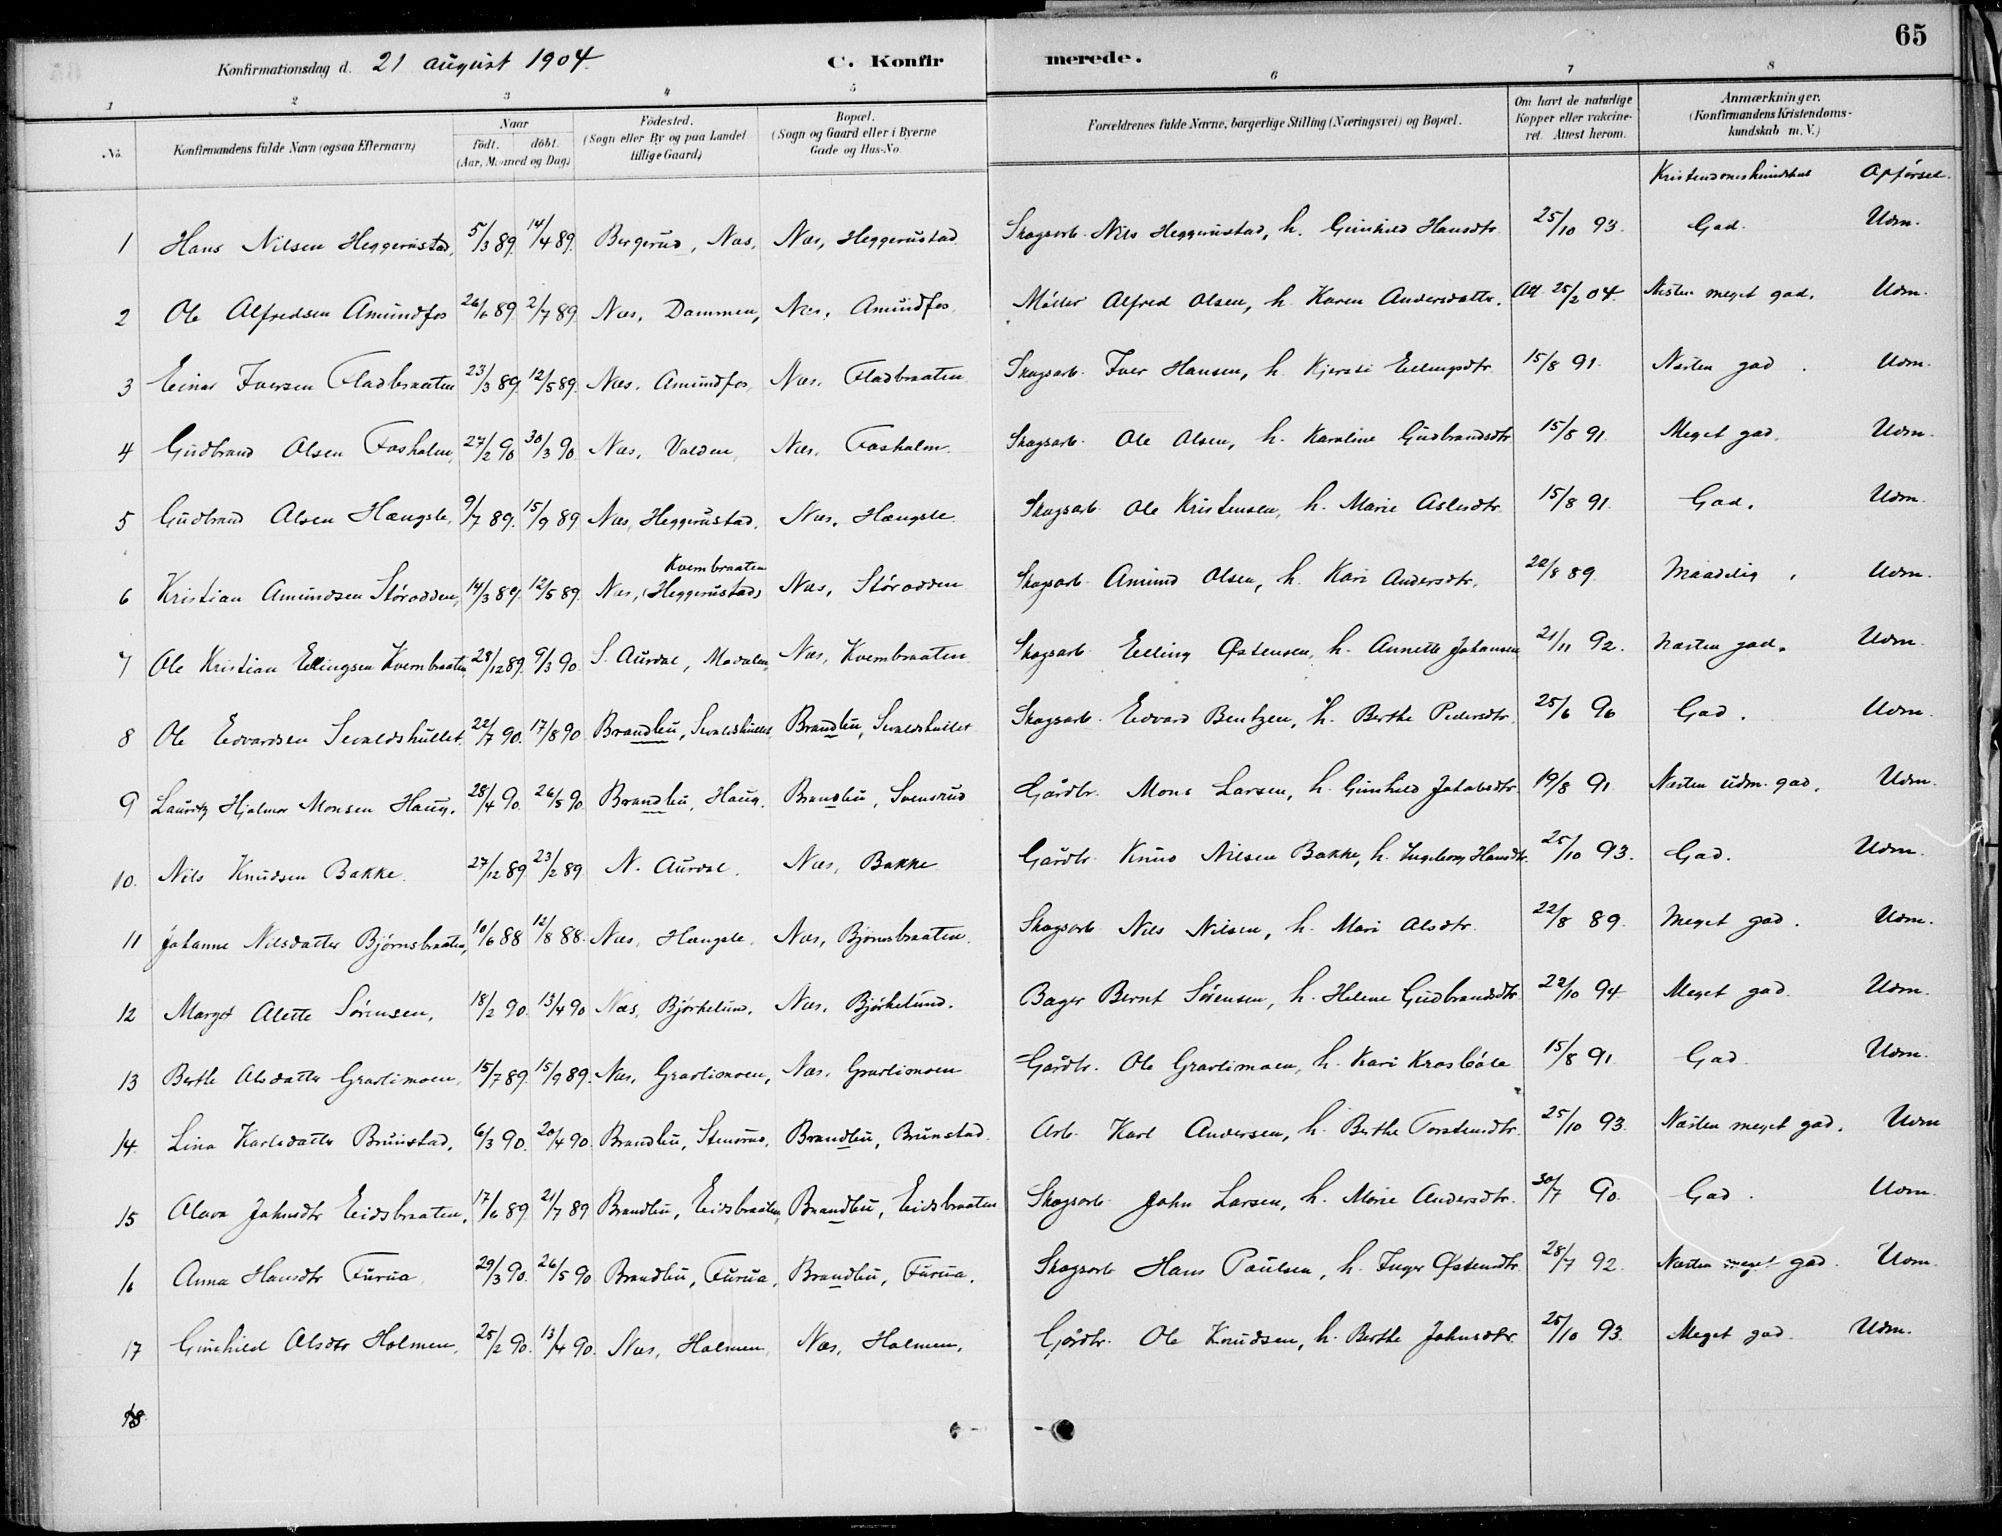 65
Konfirmationsdag d. 21 august 1904. C. Konfirmerede.
1 2 3 4 5 6 7 8
No. Konfirmandens fulde Navn (ogsaa Efternavn) Naar født. døbt. (Aar, Maaned og Dag.) Fødested. (Sogn eller By og paa Landet tillige Gaard.) Bopæl. (Sogn og Gaard eller i Byerne Gade og Hus-No. Forældrenes fulde Navne, borgerlige Stilling (Næringsvei) og Bopæl. Om havt de naturlige Kopper eller vakcineret. Attest herom. Anmærkninger. (Konfirmandens Kristendomskundskab m. V.)
Kristendomskundskab Opførsel.
1 Hans Nilsen Heggerustad, 5/3 89. 14/4 89. Bergerud, Næs, Næs, Heggerustad. Skogsarb. Nils Heggerustad, h. Gunhild Hansdtr. 25/10 93. God. Udm.
2 Ole Alfredsen Amundfos 26/6 89 2/7 89. Næs, Dammen, Næs, Amundfos. Møller Alfred Olsen, h. Karen Andersdatter. Att. 25/2 04. Næsten meget god. Udm.
3 Einar Iversen Fladbraaten 23/3 89. 12/5 89. Næs. Amundfos, Næs. Fladbraaten. Skogsarb. Iver Hansen, h. Kjersti Ellingsdtr. 15/8 91. Næsten god. Udm.
4 Gudbrand Olsen Fosholm, 27/2 90 30/3 90. Næs, Volden, Næs. Fosholm. Skogsarb. Ole Olsen, h. Karoline Gudbrandsdtr 15/8 91. Meget god. Udm.
5 Gudbrand Olsen Hængsle, 9/7 89. 15/9 89. Næs, Heggerustad, Næs. Hængsle. Skogsarb. Ole Kristensen, h. Marie Aslesdtr. 15/8 91. God. Udm.
6 Kristian Amundsen Størodden, 14/3 89. 12/5 89. Næs, Kvernbraaten (Heggerustad) Næs, Størodden Skogsarb. Amund Olsen, h. Kari Andersdtr. 22/8 89 Maadelig. Udm.
7 Ole Kristian Ellingsen Kvernbraaten 28/12 89. 9/3 90. S. Aurdal, Modalen, Næs, Kvernbraaten. Skogsarb. Elling Østensen, h. Annette Johansen 21/11 92. Næsten god. Udm.
8 Ole Edvardsen Sevaldshullet. 22/7 90. 17/8 90 Brandbu, Sevaldshullet Brandbu, Sevaldshullet Skogsarb. Edvard Bentzen, h. Berthe Pedersdtr. 25/6 96 God. Udm.
9 Lauritz Hjalmar Monsen Haug. 28/4 90. 26/5 90 Brandbu, Haug. Brandbu, Svensrud Gårdbr. Mons Larsen, h. Gunhild Jakobsdtr 19/8 91 Næsten udm. god. Udm.
10. Nils Knudsen Bakke. 27/12 89 23/2 89 N. Aurdal. Næs, Bakke. Gårdbr. Knud Nilsen Bakke, h. Ingeborg Hansdtr. 25/10 93. God. Udm.
11 Johanne Nilsdatter Bjørnsbraaten, 10/6 88 12/8 88. Næs, Hængsle. Næs, Bjørnsbraaten. Skogsarb Nils Nilsen, h. Mari Olsdtr. 22/8 89. Meget god. Udm.
12 Margot Alette Sørensen, 18/2 90. 13/4 90 Næs, Bjørkelund. Næs. Bjørkelund. Bager Bernt Sørensen, h. Helene Gudbrandsdtr 22/10 94 Meget god. Udm.
13 Berthe Olsdatter Gravlimoen, 15/7 89. 15/9 89. Næs, Gravlimoen, Næs. Gravlimoen Gårdbr. Ole Gravlimoen, h. Kari Krosbøle 15/8 91. God. Udm.
14. Lina Karlsdatter Brunstad, 6/3 90. 20/4 90. Brandbu, Stensrud, Brandbu, Brunstad. Arb. Karl Andersen, h. Berthe Torstensdtr. 25/10 93. Næsten meget god. Udm
15 Olava Johnsdtr Eidsbraaten, 17/6 89. 21/7 89 Brandbu, Eidsbraaten, Brandbu, Eidsbraaten Skogsarb. John Larsen, h. Marie Andersdtr. 30/7 90. God. Udm.
16 Anna Hansdtr Furua 29/3 90. 26/5 90 Brandbu, Furua, Brandbu, Furua. Skogsarb Hans Paulsen, h. Inger Østensdtr. 28/7 92. Næsten meget god. Udm.
17 Gunhild Olsdtr Holmen, 25/2 90. 13/4 90. Næs, Holmen, Næs, Holmen, Gårdbr. Ole Knudsen, h. Berthe Johnsdtr. 25/10 93. Meget god. Udm.
18